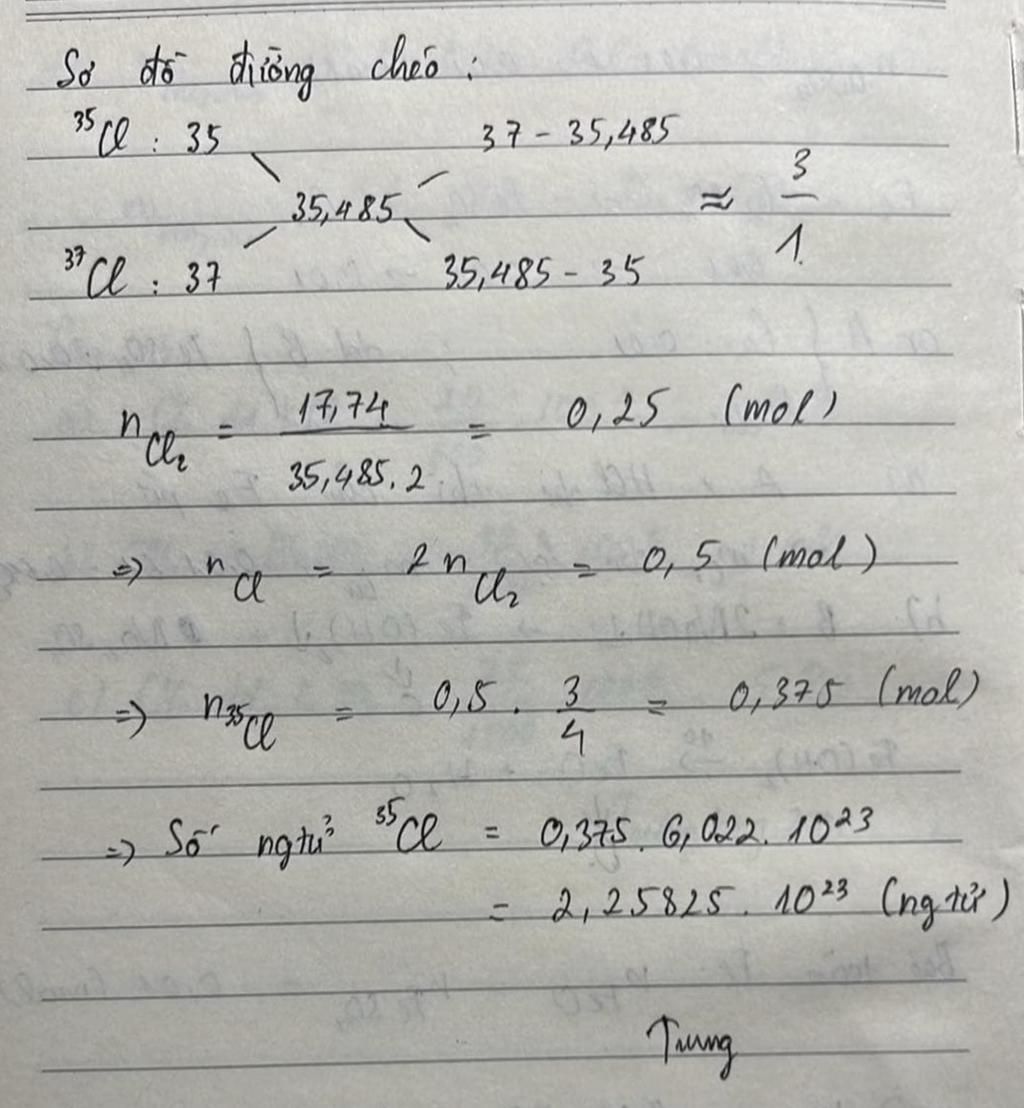 Sơ đồ đường chéo :
³⁵Cl : 35 37 - 35,485
35,485 ≈ 3/1
³⁷Cl : 37 35,485 - 35
n Cl₂ = 17,74 / 35,485.2 = 0,25 (mol)
=> n Cl = 2 n Cl₂ = 0,5 (mol)
=> n ³⁵Cl = 0,5 . 3/4 = 0,375 (mol)
=> Số ngtử ³⁵Cl = 0,375. 6,022. 10²³
= 2,25825. 10²³ (ng tử)
Trung